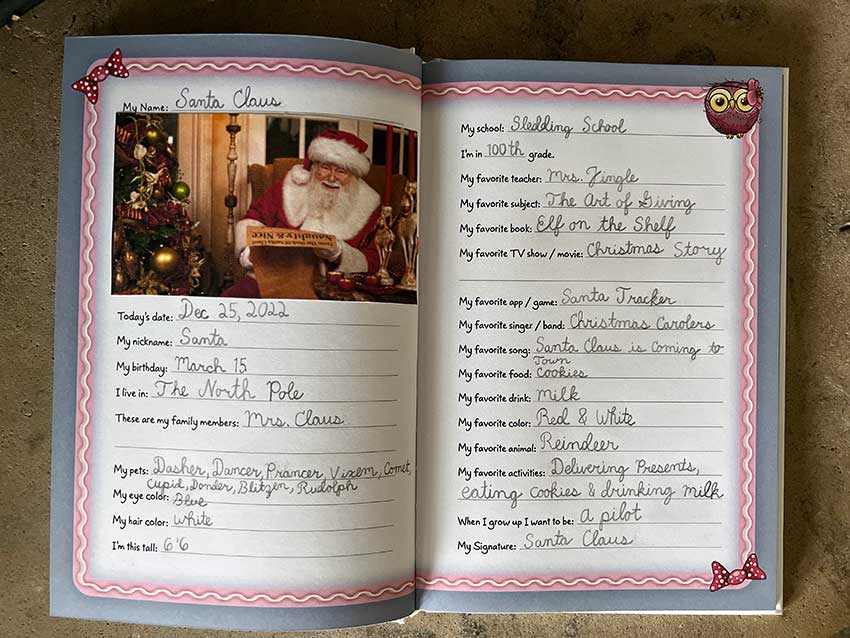 My Name: Santa Claus
Naughty & Nice
Today's date: Dec 25, 2022
My nickname: Santa
My birthday: March 15
I live in: The North Pole
These are my family members: Mrs. Claus
My pets: Dasher, Dancer, Prancer, Vixem, Comet,
Cupid, Donder, Blitzen, Rudolph
My eye color: Blue
My hair color: White
I'm this tall: 6'6
My school: Sledding School
I'm in 100th grade.
My favorite teacher: Mrs. Jingle
My favorite subject: The Art of Giving
My favorite book: Elf on the Shelf
My favorite TV show / movie: Christmas Story
My favorite app / game: Santa Tracker
My favorite singer / band: Christmas Carolers
My favorite song: Santa Claus is coming to
Town
My favorite food: Cookies
My favorite drink: Milk
My favorite color: Red & White
My favorite animal: Reindeer
My favorite activities: Delivering Presents,
eating cookies & drinking milk
When I grow up I want to be: a pilot
My Signature: Santa Claus